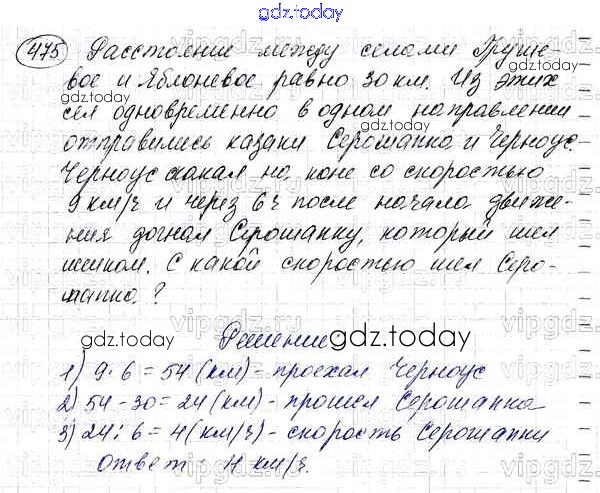 gdz.today
475 Расстояние между селами Груше-
вое и Яблоневое равно 30 км. Из этих
сел одновременно в одном направлении
отправились казаки Серошапка и Черноус.
Черноус скакал на коне со скоростью
9 км/ч и через 6 ч после начала движе-
ния догнал Серошапку, который шел
пешком. С какой скоростью шел Серо-
шапка?
Решение
1) 9·6=54 (км) - проехал Черноус
2) 54-30=24 (км) - прошел Серошапка
3) 24:6=4 (км/ч) - скорость Серошапки
Ответ: 4 км/ч.